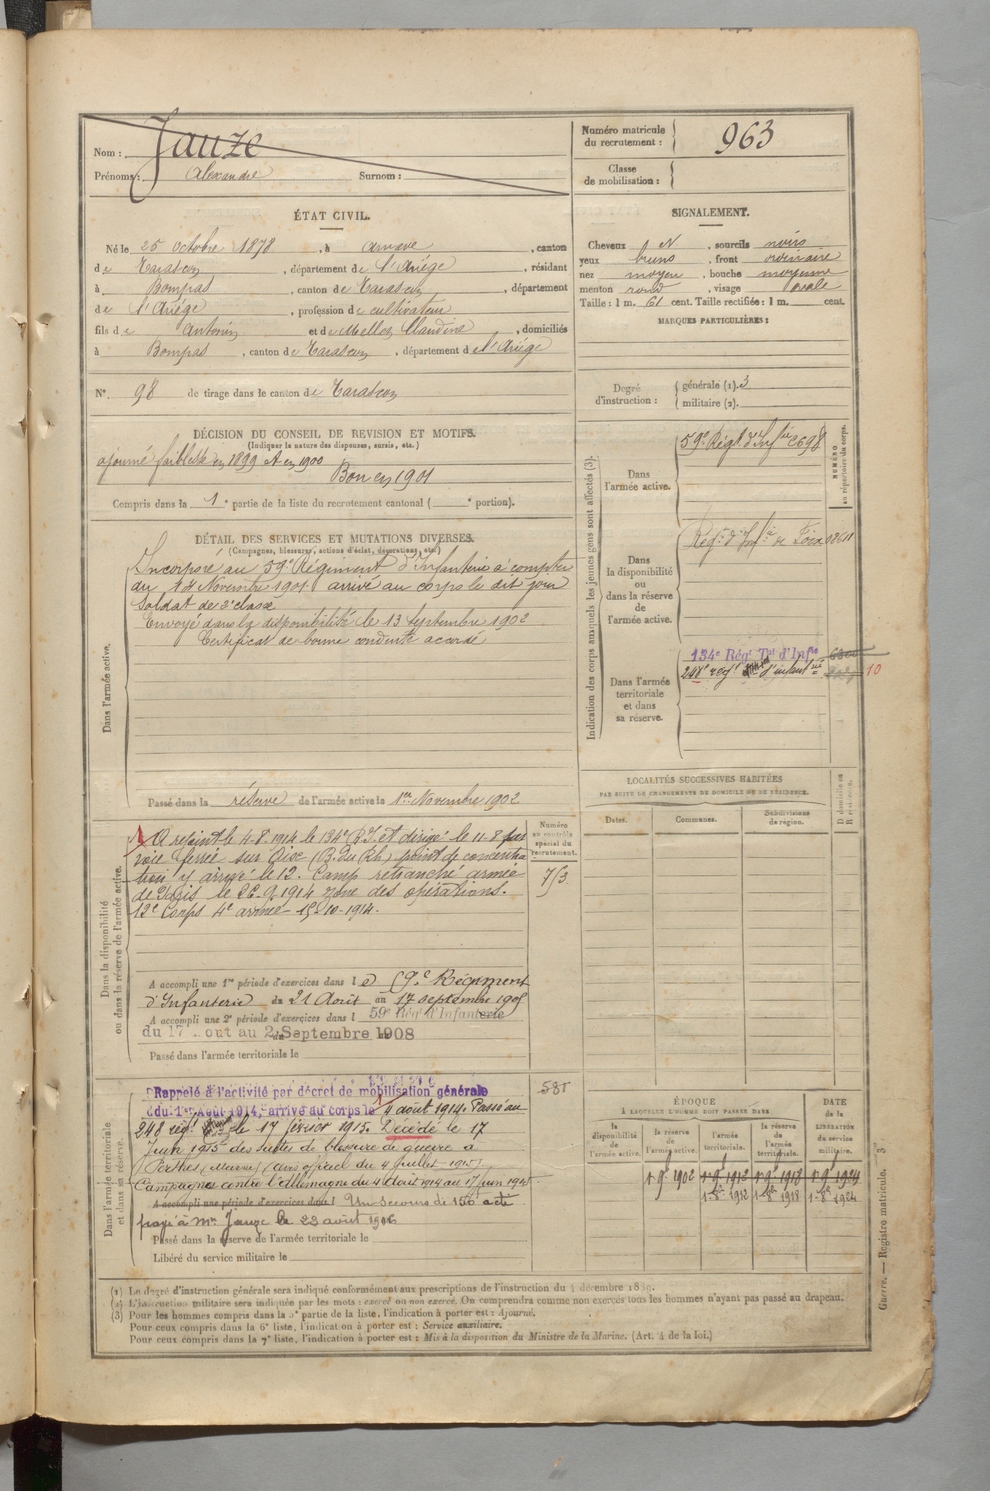 Nom : Jauze
Prénoms : Alexandre Surnom :
Numéro matricule du recrutement : 963
Classe de mobilisation :
ÉTAT CIVIL.
Né le 25 octobre 1878, à Arnave, canton
de Tarascon, département de l'Ariège, résidant
à Bompas, canton de Tarascon, département
de l'Ariège, profession de cultivateur
fils de Antonin et de Mellos Claudine, domiciliés
à Bompas, canton de Tarascon, département de l'Ariège
N° 98 de tirage dans le canton de Tarascon
SIGNALEMENT.
Cheveux N, sourcils noirs
yeux bruns, front ordinaire
nez moyen, bouche moyenne
menton rond, visage ovale
Taille : 1 m. 61 cent. Taille rectifiée : 1 m. cent.
MARQUES PARTICULIÈRES :
Degré d'instruction : générale (1). 3
militaire (2).
DÉCISION DU CONSEIL DE REVISION ET MOTIFS.
(Indiquer la nature des dispenses, sursis, etc.)
ajourné faiblesse en 1899 et en 1900
Bon en 1901
Compris dans la 1e partie de la liste du recrutement cantonal ( e portion).
DÉTAIL DES SERVICES ET MUTATIONS DIVERSES.
(Campagnes, blessures, actions d'éclat, décorations, etc.)
Dans l'armée active.
Incorporé au 59e Régiment d'Infanterie à compter
du 14 Novembre 1901 arrivé au corps le dit jour
Soldat de 2e classe
Envoyé dans la disponibilité le 13 septembre 1902
Certificat de bonne conduite accordé
Passé dans la réserve de l'armée active le 1er Novembre 1902
Indication des corps auxquels les jeunes gens sont affectés (3).
NUMÉRO au répertoire du corps.
Dans l'armée active.
59e Régt d'Infie 2698
Dans la disponibilité ou dans la réserve de l'armée active.
Régt d'Infie de Foix
Dans l'armée territoriale et dans sa réserve.
134e Régt Tal d'Infie
248e régt d'infantrie 10
LOCALITÉS SUCCESSIVES HABITÉES
PAR SUITE DE CHANGEMENTS DE DOMICILE OU DE RÉSIDENCE.
Dates. Communes. Subdivisions de région. D domicile ou R résidence.
Dans la disponibilité ou dans la réserve de l'armée active.
Numéro au contrôle spécial du recrutement.
A rejoint le 4-8-1914 le 134e R.T. et dirigé le 11-8 par
voie ferrée sur Diou (B. du Rh.) point de concentra
tion y arrivé le 12. Camp retranché armée
de Paris le 26-9-1914 zone des opérations.
12e Corps 4e armée 15-10-1914.
A accompli une 1re période d'exercices dans le 59e Régiment
d'Infanterie du 21 Août au 17 septembre 1905
A accompli une 2e période d'exercices dans l 59e Régt d'Infanterie
du 17 out au Septembre 1908
Passé dans l'armée territoriale le
Dans l'armée territoriale et dans sa réserve.
Rappelé à l'activité par décret de mobilisation générale
du 1er Août 1914, arrivé au corps le 4 août 1914. Passé au
248 régt le 17 février 1915. Décédé le 17
Juin 1915 des suites de blessure de guerre à
Perthes (Marne) (avis officiel du 4 juillet 1915)
Campagnes contre l'Allemagne du 4 Août 1914 au 17 Juin 1915
A accompli une période d'exercices dans l Un secours de 150f a été
payé à Me Jauze le 23 août 1916
Passé dans la réserve de l'armée territoriale le
Libéré du service militaire le
581
ÉPOQUE
À LAQUELLE L'HOMME DOIT PASSER DANS
la disponibilité de l'armée active. la réserve de l'armée active. l'armée territoriale. la réserve de l'armée territoriale.
DATE de la LIBÉRATION du service militaire.
1-9bre 1902 1-9bre 1912 1-9bre 1918 1-9bre 1924
1-8bre 1912 1-8bre 1918 1-8bre 1924
(1) Le degré d'instruction générale sera indiqué conformément aux prescriptions de l'instruction du 4 décembre 1889.
(2) L'instruction militaire sera indiquée par les mots : exercé ou non exercé. On comprendra comme non exercés tous les hommes n'ayant pas passé au drapeau.
(3) Pour les hommes compris dans la 2e partie de la liste, l'indication à porter est : Ajourné.
Pour ceux compris dans la 6e liste, l'indication à porter est : Service auxiliaire.
Pour ceux compris dans la 7e liste, l'indication à porter est : Mis à la disposition du Ministre de la Marine. (Art. 4 de la loi.)
Guerre. — Registre matricule. — 3e